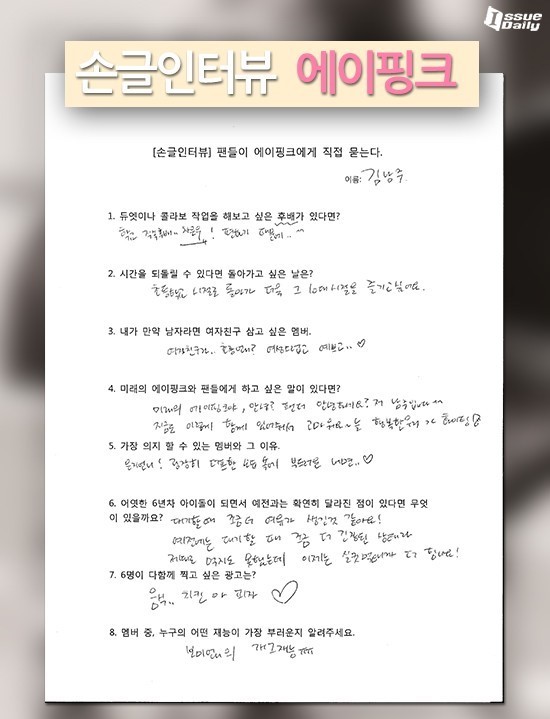 Issue
Daily
손글인터뷰 에이핑크
[손글인터뷰] 팬들이 에이핑크에게 직접 묻는다.
이름: 김남주
1. 듀엣이나 콜라보 작업을 해보고 싶은 후배가 있다면?
학교 직속후배..
2. 시간을 되돌릴 수 있다면 돌아가고 싶은 날은?
고등학교 시절로 돌아가 더욱 그 10대시절을 즐기고싶어요.
3. 내가 만약 남자라면 여자친구 삼고 싶은 멤버.
여자친구라.. 여성스럽고 예쁘고.. ♡
4. 미래의 에이핑크와 팬들에게 하고 싶은 말이 있다면?
미래의 에이핑크야, 안녕? 팬더 안녕하세요? 저 남주입니다 ^^
지금도 이렇게 함께 있어줘서 고마워요~ 늘 행복한 우리 가 화이팅
5. 가장 의지 할 수 있는 멤버와 그 이유.
은지언니! 굉장히 부드러운 내면.. ♡
6. 어엿한 6년차 아이돌이 되면서 예전과는 확연히 달라진 점이 있다면 무엇
이 있을까요? 대기할때 조금 더 여유가 생긴것 같아요!
예전에는 대기할 때 조금 더 긴장된 상태라
제대로 먹지도 못했는데 이제는
7. 6명이 다함께 찍고 싶은 광고는?
음.. 치킨 아 피자 ♡
8. 멤버 중, 누구의 어떤 재능이 가장 부러운지 알려주세요.
보미언니의 개그재능